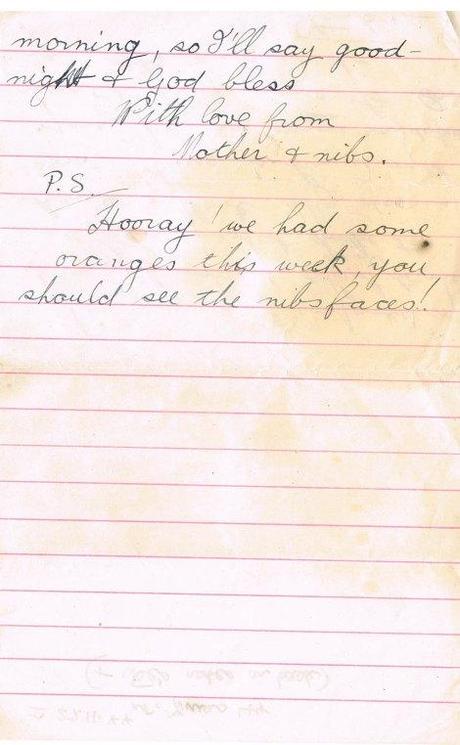 morning, so I'll say good-
night & God bless
With love from
Mother & nibs.
P.S.
Hooray! we had some
oranges this week, you
should see the nibs faces!